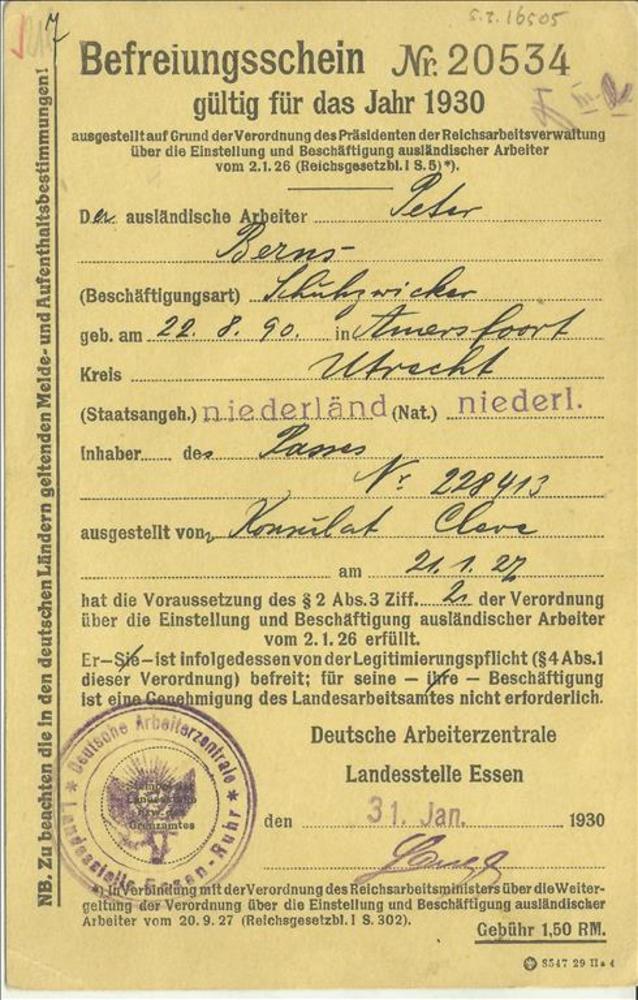 7
S.Z. 16505
Befreiungsschein Nr. 20534
gültig für das Jahr 1930
ausgestellt auf Grund der Verordnung des Präsidenten der Reichsarbeitsverwaltung
über die Einstellung und Beschäftigung ausländischer Arbeiter
vom 2.1.26 (Reichsgesetzbl. I S. 5)*).
Der ausländische Arbeiter Peter
Berns
(Beschäftigungsart) Schuhzwicker
geb. am 22. 8. 90. in Amersfoort
Kreis Utrecht
(Staatsangeh.) niederländ (Nat.) niederl.
Inhaber des Passes
Nr. 228413
ausgestellt von Konsulat Cleve
am 21. 1. 27
hat die Voraussetzung des § 2 Abs. 3 Ziff. 2. der Verordnung
über die Einstellung und Beschäftigung ausländischer Arbeiter
vom 2.1.26 erfüllt.
Er—Sie—ist infolgedessen von der Legitimierungspflicht (§ 4 Abs. 1
dieser Verordnung) befreit; für seine — ihre — Beschäftigung
ist eine Genehmigung des Landesarbeitsamtes nicht erforderlich.
Deutsche Arbeiterzentrale
Landesstelle Essen
den 31. Jan. 1930
* Deutsche Arbeiterzentrale *
Landesstelle Essen-Ruhr
Stempel der
Landesstelle
bzw. des
Grenzamtes
*) In Verbindung mit der Verordnung des Reichsarbeitsministers über die Weiter-
geltung der Verordnung über die Einstellung und Beschäftigung ausländischer
Arbeiter vom 20. 9. 27 (Reichsgesetzbl. I S. 302).
Gebühr 1,50 RM.
8547 29 II a 4
NB. Zu beachten die in den deutschen Ländern geltenden Melde- und Aufenthaltsbestimmungen!